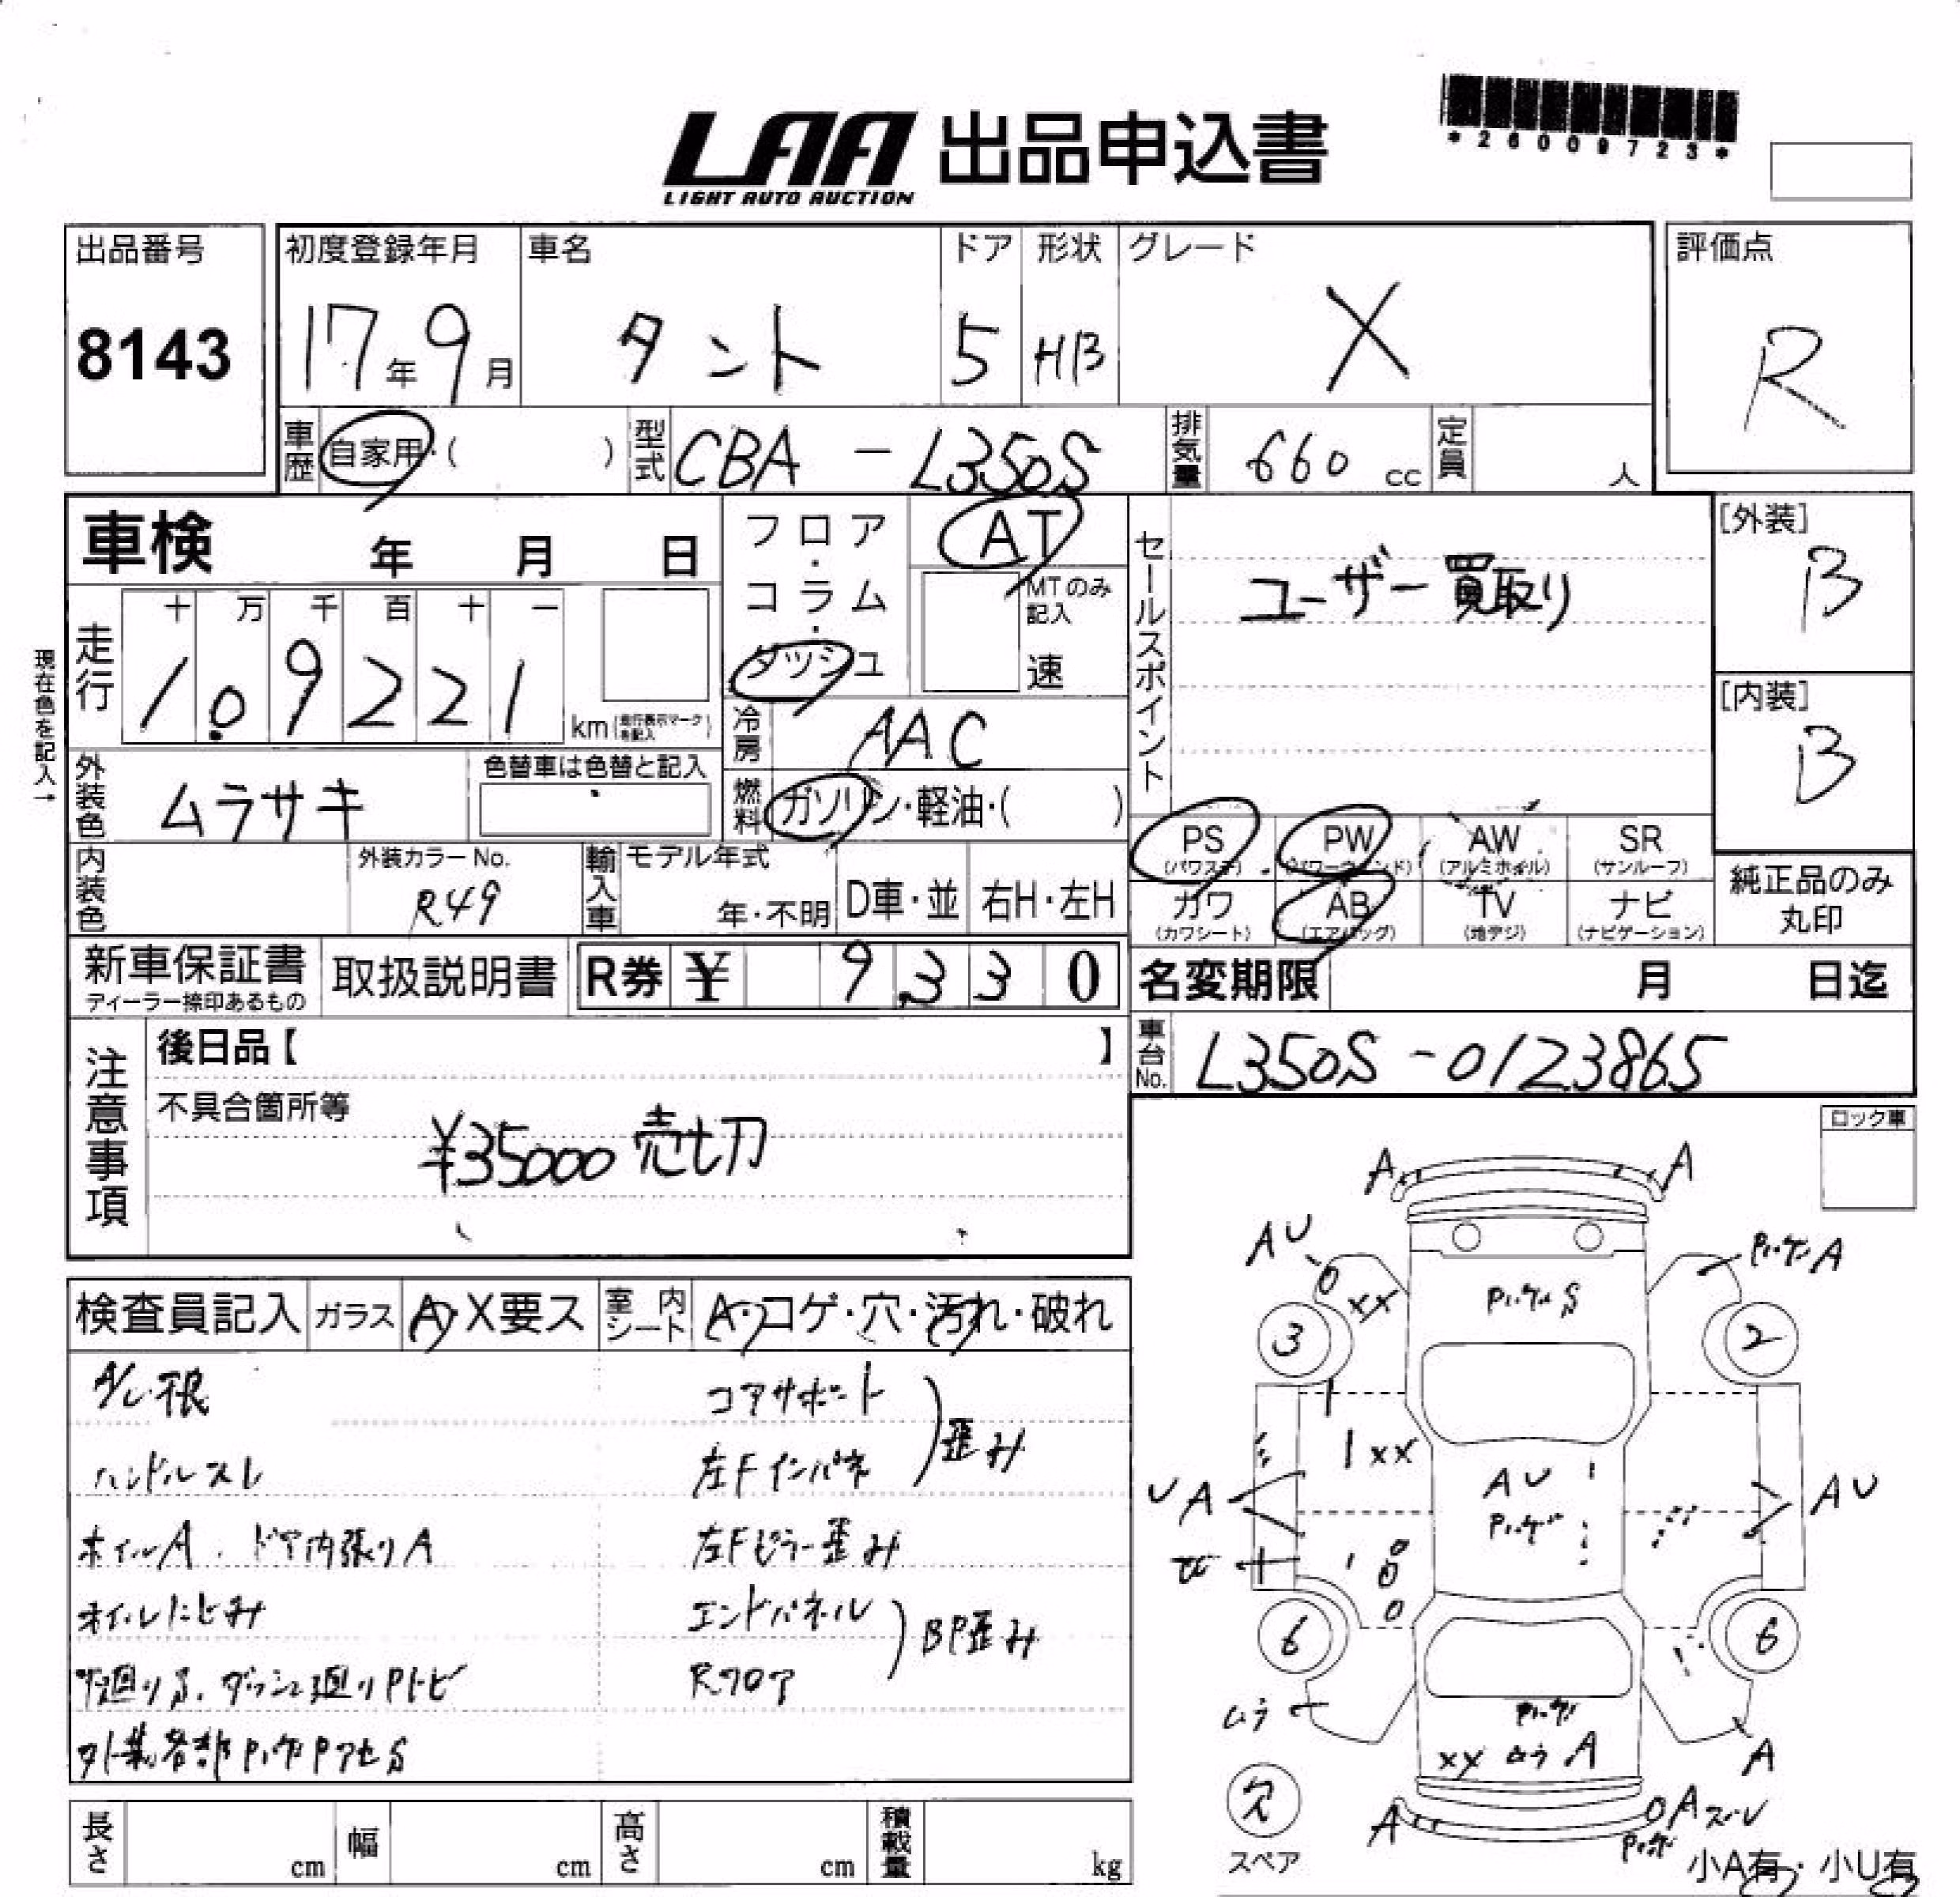 LAA 出品申込書
LIGHT AUTO AUCTION
*26009723*
出品番号
8143
初度登録年月
17年9月
車名
タント
ドア
5
形状
HB
グレード
X
評価点
R
車歴 自家用・( )
型式 CBA-L350S
排気量 660 cc
定員 人
車検 年 月 日
フロア・コラム・ダッシュ
AT
MTのみ記入
速
セールスポイント
ユーザー買取り
[外装]
B
[内装]
B
現在色を記入→
走行
十 万 千 百 十 一
1 0 9 2 2 1 km
(走行表示マークを記入)
冷房 AAC
外装色 ムラサキ
色替車は色替と記入
燃料 ガソリン・軽油・( )
PS (パワステ)
PW (パワーウィンド)
AW (アルミホイル)
SR (サンルーフ)
カワ (カワシート)
AB (エアバッグ)
TV (地デジ)
ナビ (ナビゲーション)
純正品のみ丸印
内装色
外装カラーNo.
R49
輸入車
モデル年式
年・不明
D車・並
右H・左H
新車保証書
ディーラー捺印あるもの
取扱説明書
R券 ¥ 9,330
名変期限 月 日迄
車台No. L350S-0123865
注意事項
後日品【 】
不具合箇所等
¥35000 売切
ロック車
検査員記入 ガラス A・X要ス 室内シート A・コゲ・穴・汚れ・破れ
コアサポート
ハンドルスレ
左Fインパネ
歪み
ホイルA. ドア内張りA
左Fピラー歪み
オイルにじみ
エンドパネル
Rフロア
BP歪み
A A
AU
A
3 2
XX
XX
UA
AU
AU
6 6
ムラ
XX ムラ A
A
A
A
欠
スペア
小A有・小U有
長さ cm
幅 cm
高さ cm
積載量 kg